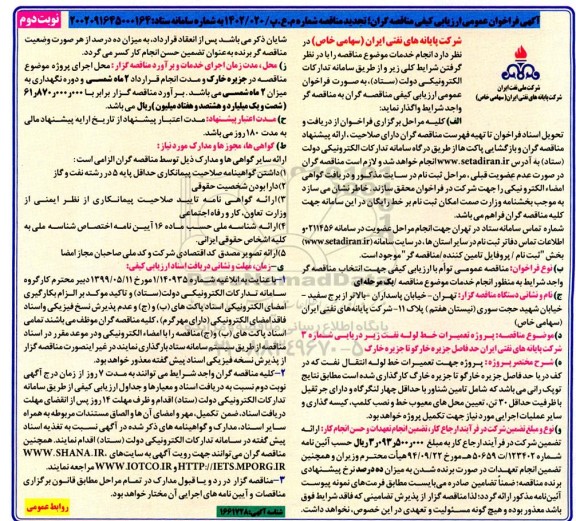 آگهی فراخوان عمومی ارزیابی کیفی مناقصه گران/ تجدید مناقصه شماره م.ع.پ/۱۴۰۲/۰۲۰ به شماره سامانه ستاد: ۲۰۰۲۰۹۱۶۴۵۰۰۰۱۶۴
نوبت دوم
شرکت ملی نفت ایران
شرکت پایانه های نفتی ایران (سهامی خاص)
شرکت پایانه های نفتی ایران (سهامی خاص) در
نظر دارد انجام خدمات موضوع مناقصه را با در نظر
گرفتن شرایط کلی زیر و از طریق سامانه تدارکات
الکترونیکی دولت (ستاد)، به صورت فراخوان
عمومی ارزیابی کیفی مناقصه گران به مناقصه گر
واجد شرایط واگذار نماید:
الف) کلیه مراحل برگزاری فراخوان از دریافت و
تحویل اسناد فراخوان تا تهیه فهرست مناقصه گران دارای صلاحیت، ارائه پیشنهاد
مناقصه گران و بازگشایی پاکت ها از طریق درگاه سامانه تدارکات الکترونیکی دولت
(ستاد) به آدرس www.setadiran.ir انجام خواهد شد و لازم است مناقصه گران
در صورت عدم عضویت قبلی، مراحل ثبت نام در سایت مذکور و دریافت گواهی
امضاء الکترونیکی را جهت شرکت در فراخوان محقق سازند. خاطر نشان می سازد
به موجب بخشنامه وزارت صمت امکان ثبت نام بر خط رایگان در این سامانه جهت
کلیه مناقصه گران فراهم می باشد.
شماره تماس سامانه ستاد در تهران جهت انجام مراحل عضویت در سامانه ۲۱۱۴۵۶-۰ و
اطلاعات تماس دفاتر ثبت نام در سایر استان ها، در سایت سامانه (www.setadiran.ir)
بخش "ثبت نام / پروفایل تامین کننده/مناقصه گر" موجود است.
ب) نوع فراخوان: مناقصه عمومی توأم با ارزیابی کیفی جهت انتخاب مناقصه گر
واجد شرایط به منظور انجام خدمات موضوع مناقصه /یک مرحله ای
ج) نام و نشانی دستگاه مناقصه گزار: تهران - خیابان پاسداران - بالاتر از برج سفید -
خیابان شهید حجت سوری (نیستان هفتم) پلاک ۱۱- شرکت پایانه های نفتی ایران
(سهامی خاص)
د) موضوع مناقصه: پروژه تعمیرات خط لوله نفت زیر دریایی شماره ۳
شرکت پایانه های نفتی ایران حد فاصل جزیره خارگو تا جزیره خارک
ه) شرح مختصر پروژه: پروژه جهت تعمیرات خط لوله انتقال نفت که در
کف دریا حد فاصل جزیره خارگو تا جزیره خارک کارگذاری شده است مطابق نتایج
توپک رانی می باشد که شامل تامین شناور با حداقل چهار لنگرگاه و دارای جرثقیل
با ظرفیت حداقل ۳۰ تن، تعیین محل های معیوب خط و نصب کلمپ، کیسه گذاری و
سایر عملیات اجرایی مورد نیاز جهت تکمیل پروژه خواهد بود.
و) نوع و مبلغ تضمین شرکت در فرآیند ارجاع کار، تضمین انجام تعهدات و حسن انجام کار: ارائه
تضمین شرکت در فرآیند ارجاع کار به مبلغ ۳,۰۹۳,۵۰۰,۰۰۰ ریال حسب آئین نامه
شماره ۱۲۳۴۰۲/ت ۵۰۶۵۹ هـ مورخ ۹۴/۰۹/۲۲ هیأت محترم وزیران و همچنین
تضمین انجام تعهدات در صورت برنده شدن به میزان ده درصد نرخ پیشنهادی
برنده مناقصه؛ ضمناً تضامین صادره می بایست مطابق فرمت های نمونه پیوست
آئین نامه مذکور ارائه گردد؛ لذا مناقصه گزار از پذیرش تضامینی که فاقد شرایط فوق
باشد معذور بوده و هیچ گونه مسئولیت و تعهدی در این خصوص، نخواهد داشت.
شایان ذکر می باشد پس از انعقاد قرارداد، به میزان ده درصد از هر صورت وضعیت
مناقصه گر برنده به عنوان تضمین حسن انجام کار کسر می گردد.
ز) محل، مدت زمان اجرای خدمات و برآورد مناقصه گزار: محل اجرای پروژه موضوع
مناقصه در جزیره خارک و مدت انجام قرارداد ۲ ماه شمسی و دوره نگهداری به
میزان ۲ ماه شمسی می باشد. برآورد مناقصه گزار برابر با ۶۱,۸۷۰,۰۰۰,۰۰۰
(شصت و یک میلیارد و هشتصد و هفتاد میلیون) ریال می باشد.
ح) مدت اعتبار پیشنهاد: مدت اعتبار پیشنهاد از تاریخ ارایه پیشنهاد مالی
به مدت ۱۸۰ روز می باشد.
ط) گواهی ها، مجوزها و مدارک مورد نیاز:
ارائه سایر گواهی ها و مدارک ذیل توسط مناقصه گران الزامی است:
۱) داشتن گواهینامه صلاحیت پیمانکاری حداقل پایه ۵ در رشته نفت و گاز
۲) دارا بودن شخصیت حقوقی
۳) ارائه گواهی نامه تایید صلاحیت پیمانکاری از نظر ایمنی از
وزارت تعاون، کار و رفاه اجتماعی
۴) ارائه شناسه ملی حسب ماده ۱۶ آیین نامه اختصاص شناسه ملی به
کلیه اشخاص حقوقی ایرانی.
۵) ارائه تصویر مصدق کد اقتصادی شرکت و کد ملی صاحبان مجاز امضا
ی- زمان، مهلت و نشانی دریافت اسناد ارزیابی کیفی:
۱- با عنایت به ابلاغیه شماره مورخ ۱۳۹۹/۰۵/۱۱ دبیر محترم کارگروه
سامانه تدارکات الکترونیکی دولت (ستاد) و تاکید موکد بر الزام بکارگیری
امضای الکترونیکی اسناد پاکت های (ب) و (ج) و عدم پذیرش نسخ فیزیکی و اسناد
فاقد امضای الکترونیکی (دارای مهر گرم)، کلیه مناقصه گران موظف می باشند تمامی
اسناد پاکت های (ب)، (ج) مناقصه را با امضاء الکترونیکی و در موعد مقرر در اسناد
مناقصه از طریق سامانه ستاد بارگذاری نمایند در غیر اینصورت مناقصه گزار
از پذیرش نسخه فیزیکی اسناد پیش گفته معذور خواهد بود.
۲- کلیه مناقصه گران واجد شرایط می توانند به مدت ۷ روز از زمان درج آگهی
نوبت دوم نسبت به دریافت اسناد و معیارها و جداول ارزیابی کیفی از طریق سامانه
تدارکات الکترونیکی دولت (ستاد) اقدام و ظرف مهلت ۱۴ روز پس از انقضای مهلت
دریافت اسناد، ضمن تکمیل، مهر و امضای آن ها و الصاق مستندات مربوطه به همراه
سایر اسناد، مدارک و گواهینامه های ذکر شده در آگهی نسبت به تغذیه اسناد
پیش گفته در سامانه تدارکات الکترونیکی دولت (ستاد) اقدام نمایند. همچنین
مناقصه گران می توانند جهت رویت آگهی به سایت های WWW.SHANA.IR،
HTTP://IETS.MPORG.IR و WWW.IOTCO.IR مراجعه نمایند.
۳- مناقصه گزار در رد و یا قبول مدارک در تمام مراحل مطابق قانون برگزاری
مناقصات و آیین نامه های اجرایی آن مختار خواهد بود.
شناسه آگهی: ۱۶۶۱۲۲۸
روابط عمومی